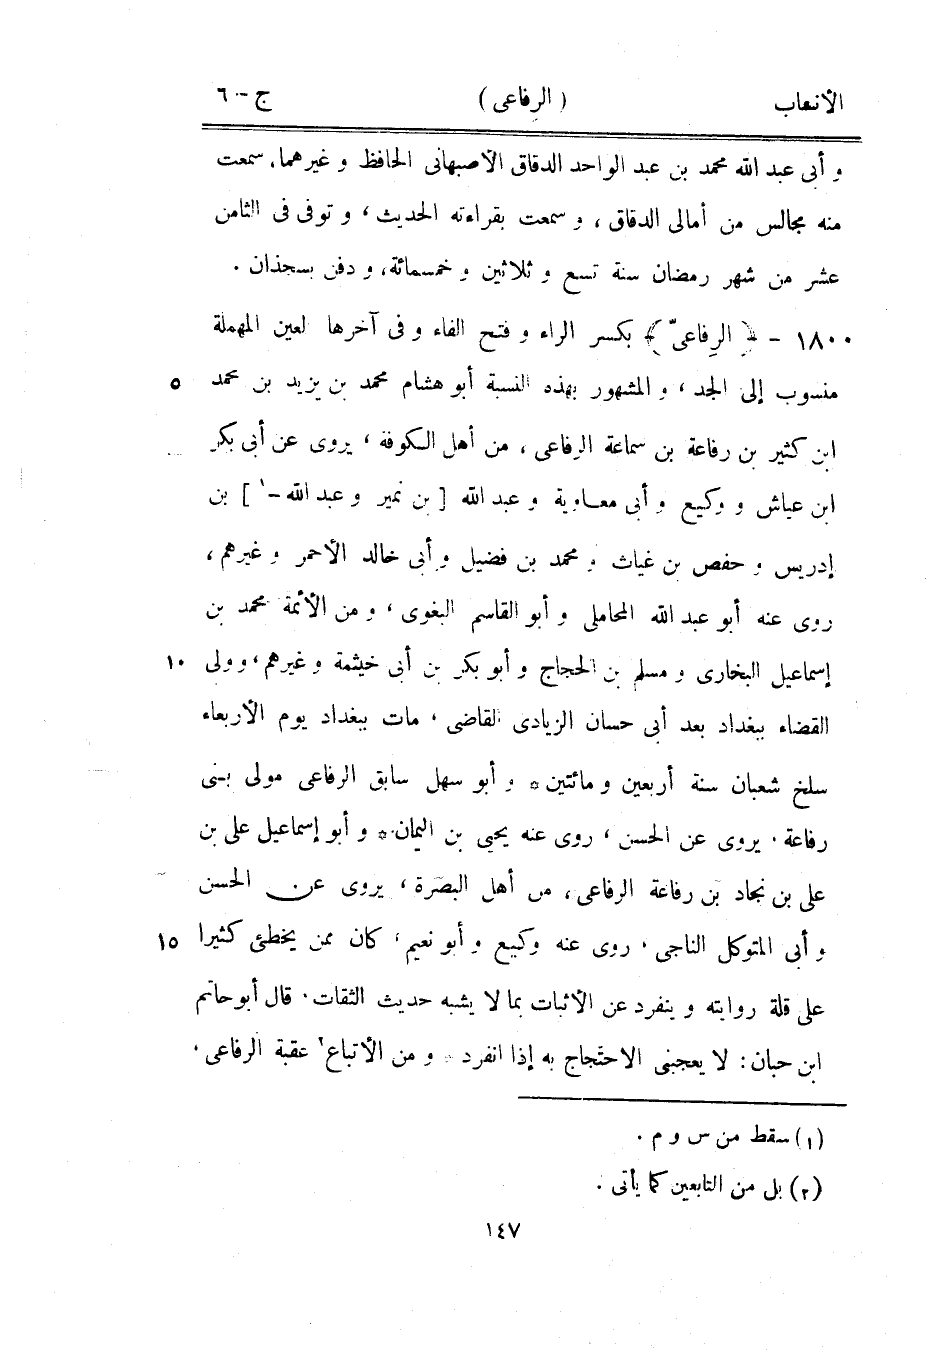 الأنساب ( الرِفاعى ) ج - ٦
و أبى عبد الله محمد بن عبد الواحد الدقاق الأصبهانى الحافظ و غيرهما، سمعت
منه مجالس من أمالى الدقاق ، و سمعت بقراءته الحديث ، و توفى فى الثامن
عشر من شهر رمضان سنة تسع و ثلاثين و خمسمائة، و دفن بسجذان .
١٨٠٠ - ﴿ الرِفاعىّ ﴾ بكسر الراء و فتح الفاء و فى آخرها لعين المهملة
منسوب إلى الجد ، و المشهور بهذه النسبة أبو هشام محمد بن يزيد بن محمد ٥
ابن كثير بن رفاعة بن سماعة الرفاعى ، من أهل الكوفة ، يروى عن أبى بكر
ابن عياش و وكيع و أبى معاوية و عبد الله [ بن نمير و عبد الله -١ ] بن
إدريس و حفص بن غياث و محمد بن فضيل و أبى خالد الأحمر و غيرهم ،
روى عنه أبو عبد الله المحاملى و أبو القاسم البغوى ، و من الأئمة محمد بن
إسماعيل البخارى و مسلم بن الحجاج و أبو بكر بن أبى خيثمة و غيرهم ، وولى ١٠
القضاء ببغداد بعد أبى حسان الزيادى القاضى ، مات ببغداد يوم الأربعاء
سلخ شعبان سنة أربعين و مائتين * و أبو سهل سابق الرفاعى مولى بنى
رفاعة . يروى عن الحسن ، روى عنه يحيى بن اليمان * و أبو إسماعيل على بن
على بن نجاد بن رفاعة الرفاعى ، من أهل البصرة ، يروى عن الحسن
و أبى المتوكل الناجى . روى عنه وكيع و أبو نعيم ، كان ممن يخطئ كثيرا ١٥
على قلة روايته و ينفرد عن الأثبات بما لا يشبه حديث الثقات . قال أبو حاتم
ابن حبان : لا يعجبنى الاحتجاج به إذا انفرد * و من الأتباع ٢ عقبة الرفاعى .
(١) سقط من س و م .
(٢) بل من التابعين كما يأتى .
١٤٧